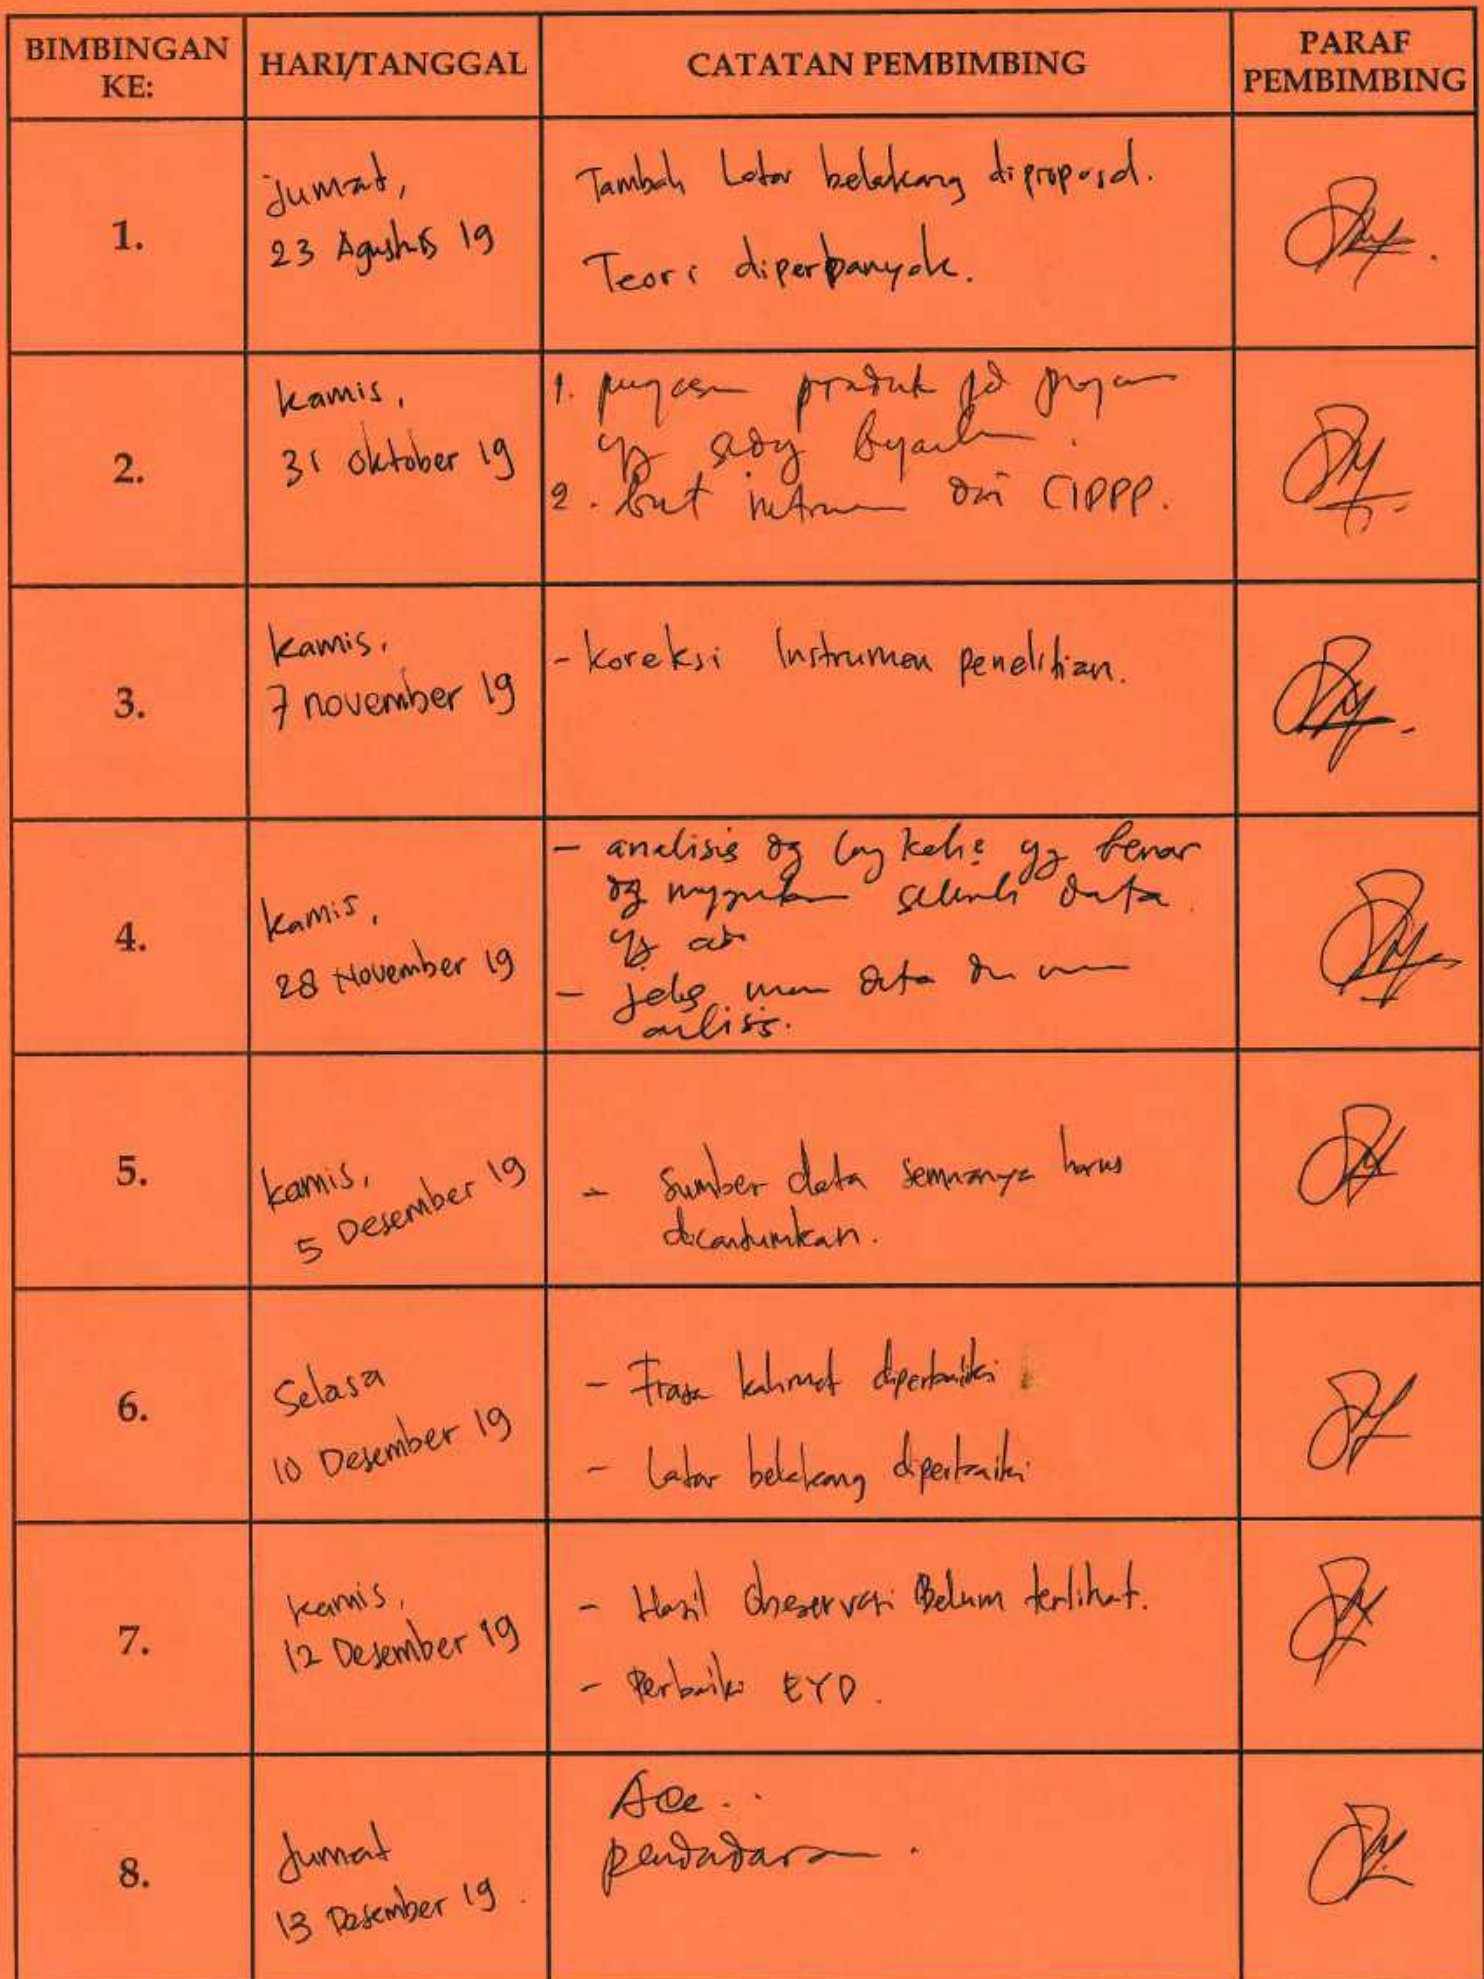 BIMBINGAN KE: HARI/TANGGAL CATATAN PEMBIMBING PARAF PEMBIMBING
1.
Jumat,
23 Agustus 19
Tambah Latar belakang diproposal.
Teori diperbanyak.
2.
Kamis,
31 Oktober 19
1. produk pd
yg
2. dari CIPPP.
3.
Kamis,
7 november 19
- Koreksi Instrumen penelitian.
4.
Kamis,
28 November 19
- analisis dg yg benar
dg data
yg
- data
analisis.
5.
Kamis,
5 Desember 19
- Sumber data semuanya harus
dicantumkan.
6.
Selasa
10 Desember 19
- Frasa kalimat diperbaiki
- Latar belakang diperbaiki
7.
Kamis,
12 Desember 19
- Hasil Observasi Belum terlihat.
- Perbaiki EYD.
8.
Jumat
13 Desember 19.
Acc..
pendadaran.